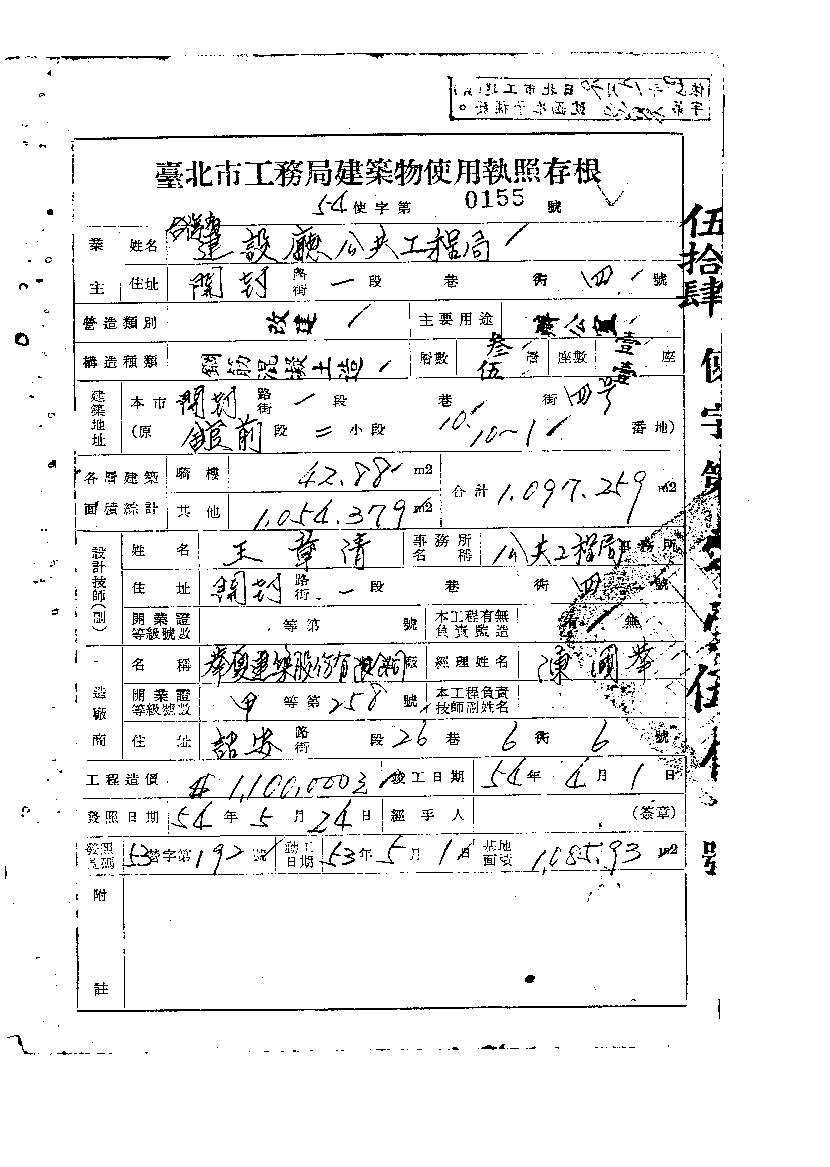 臺北市工務局建築物使用執照存根
54使字第 0155 號
業 姓名 台灣省建設廳公共工程局
主 住址 開封 路街 一 段 巷 街 四 號
營造類別 改建 主要用途 辦公室
構造種類 鋼筋混凝土造 層數 叁伍 層 座數 壹壹 座
建築地址 本市 開封 路街 一 段 巷 街 四號
(原 館前 段 二 小段 10 10~1 番地)
各層建築面積綜計 騎樓 42.88 m2 合計 1,097.259 m2
其他 1,054.379 m2
設計技師(副) 姓名 王章清 事務所名稱 公共工程局 事務所
住址 開封 路街 一 段 巷 街 四 號
開業證等級號數 等第 號 本工程有無負責監造 無
名稱 華夏建築股份有限公司 廠 經理姓名 陳國華
造廠商 開業證等級號數 甲 等第 258 號 本工程負責技師副姓名
住址 詔安 路街 段 26 巷 6 街 6 號
工程造價 #1,100,000元 竣工日期 54年 4月 1日
發照日期 54年 5月 24日 經手人 (簽章)
發照號碼 53營字第192號 動工日期 53年5月1日 基地面積 1,085.93 m2
附註
伍拾肆使字第
號